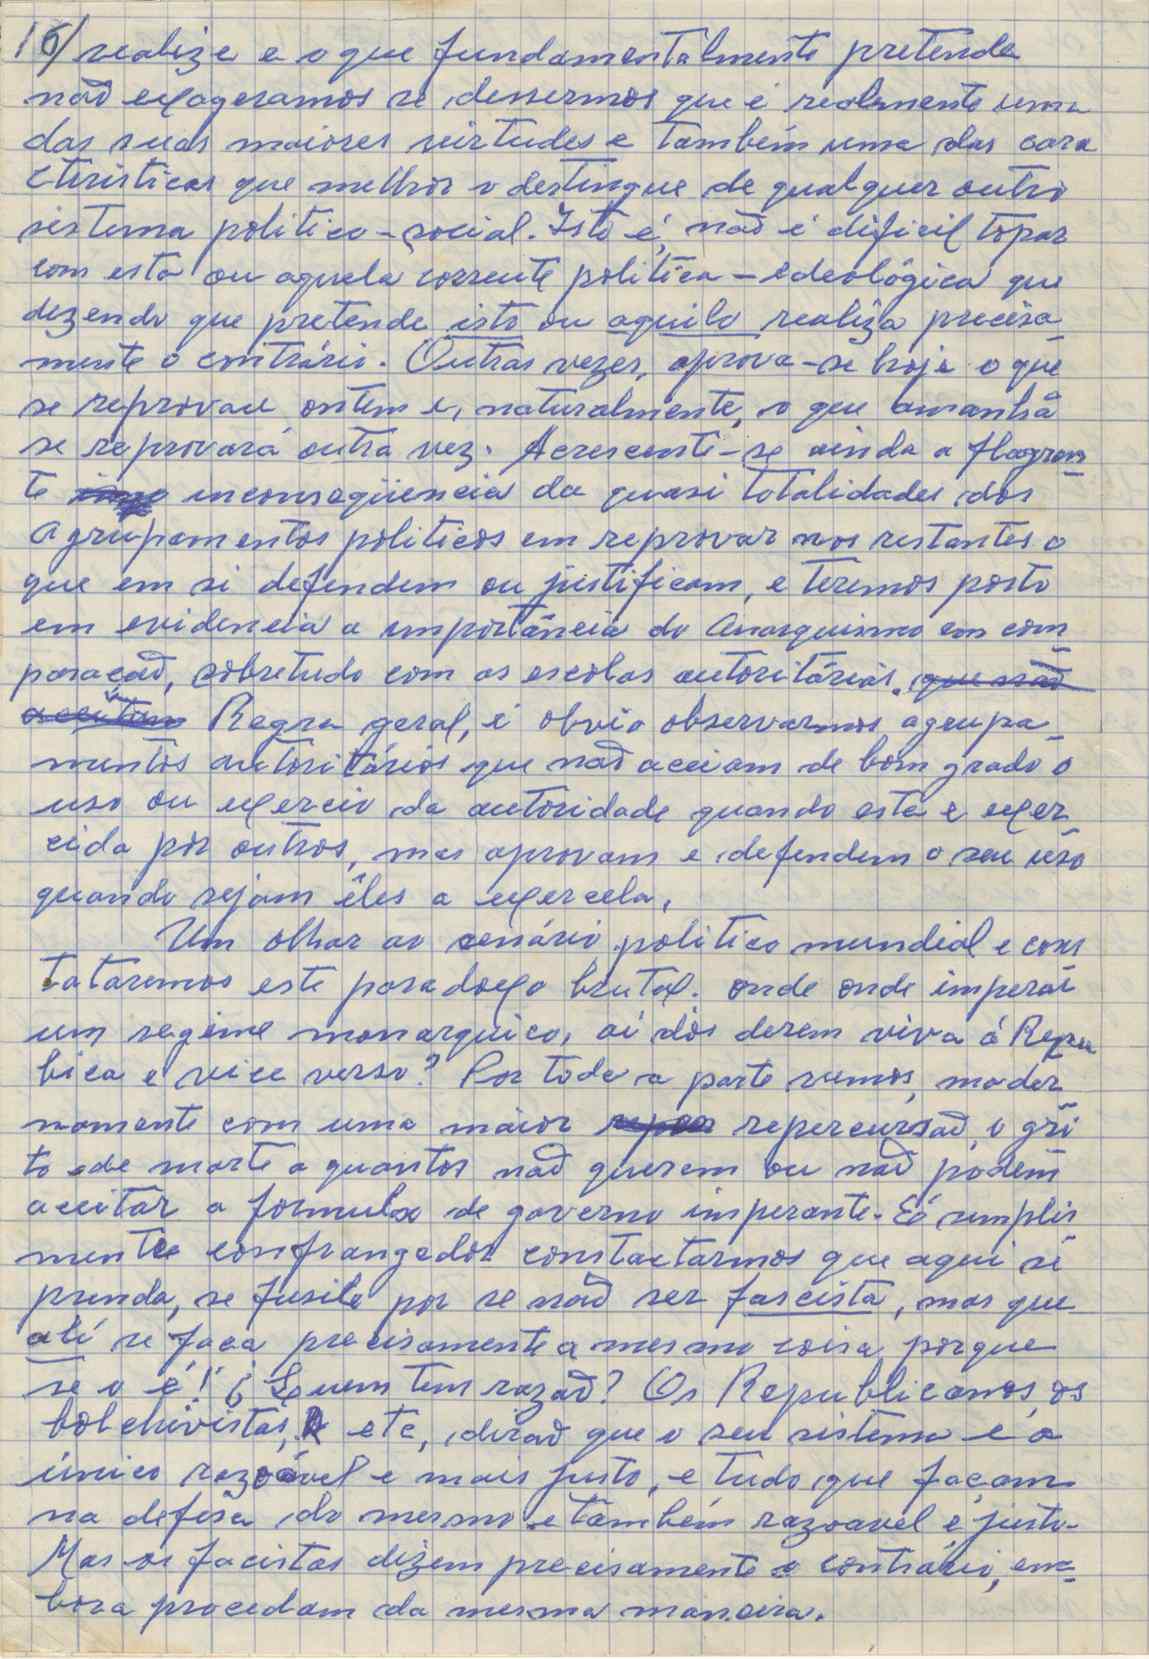 16/ realize e o que fundamentálmente pretende
não exageramos se dessermos que é realmente uma
das suas maiores virtudes e também uma das cara
cteristicas que melhor o destingue de qualquer outro
sistema politico-social. Isto é, não é dificil topar
com esta ou aquela corrente politica-edeológica que
dezendo que pretende isto ou aquilo realiza precisa
mente o contrário. Outras vezes, aprova-se hoje o que
se reprovou ontem e, naturalmente, o que amanhã
se reprovará outra vez. Acrescente-se ainda a flagran
te inconseqüencia da quasi totalidades dos
agrupamentos politicos em reprovar nos restantes o
que em si defendem ou justificam, e teremos posto
em evidencia a importância do Anarquismo em com-
paração, sobretudo com as escolas autoritárias. que não
aceitam Regra geral, é obvio observarmos agrupa-
mentos autoritários que não aceiam de bom grado o
uso ou exercio da autoridade quando esta e exer
cida por outros, mas aprovam e defendem o seu uso
quando sejam êles a exercela.
Um olhar ao cenário politico mundial e cons
tataremos este paradoxo brutal. onde onde impera
um regime monarquico, ai dos derem viva á Repu
blica e vice verso? Por toda a parte vemos, moder
namente com uma maior repercursão, o gri
to de morte a quantos não querem ou não podem
aceitar a formula de governo imperante. É simples
mente confrangedor constactarmos que aqui se
prenda, se fusile por se não ser fascista, mas que
ali se faca precisamente a mesmo coisa porque
se o é! ¿ Quem tem razão? Os Republicanos, os
bolchivistas, etc, dirão que o seu sistema é o
único razoável e mais justo, e tudo que façam
na defesa do mesmo e também razoavel e justo.
Mas os facistas dizem precisamente o contrário, em-
bora procedam da mesma maneira.